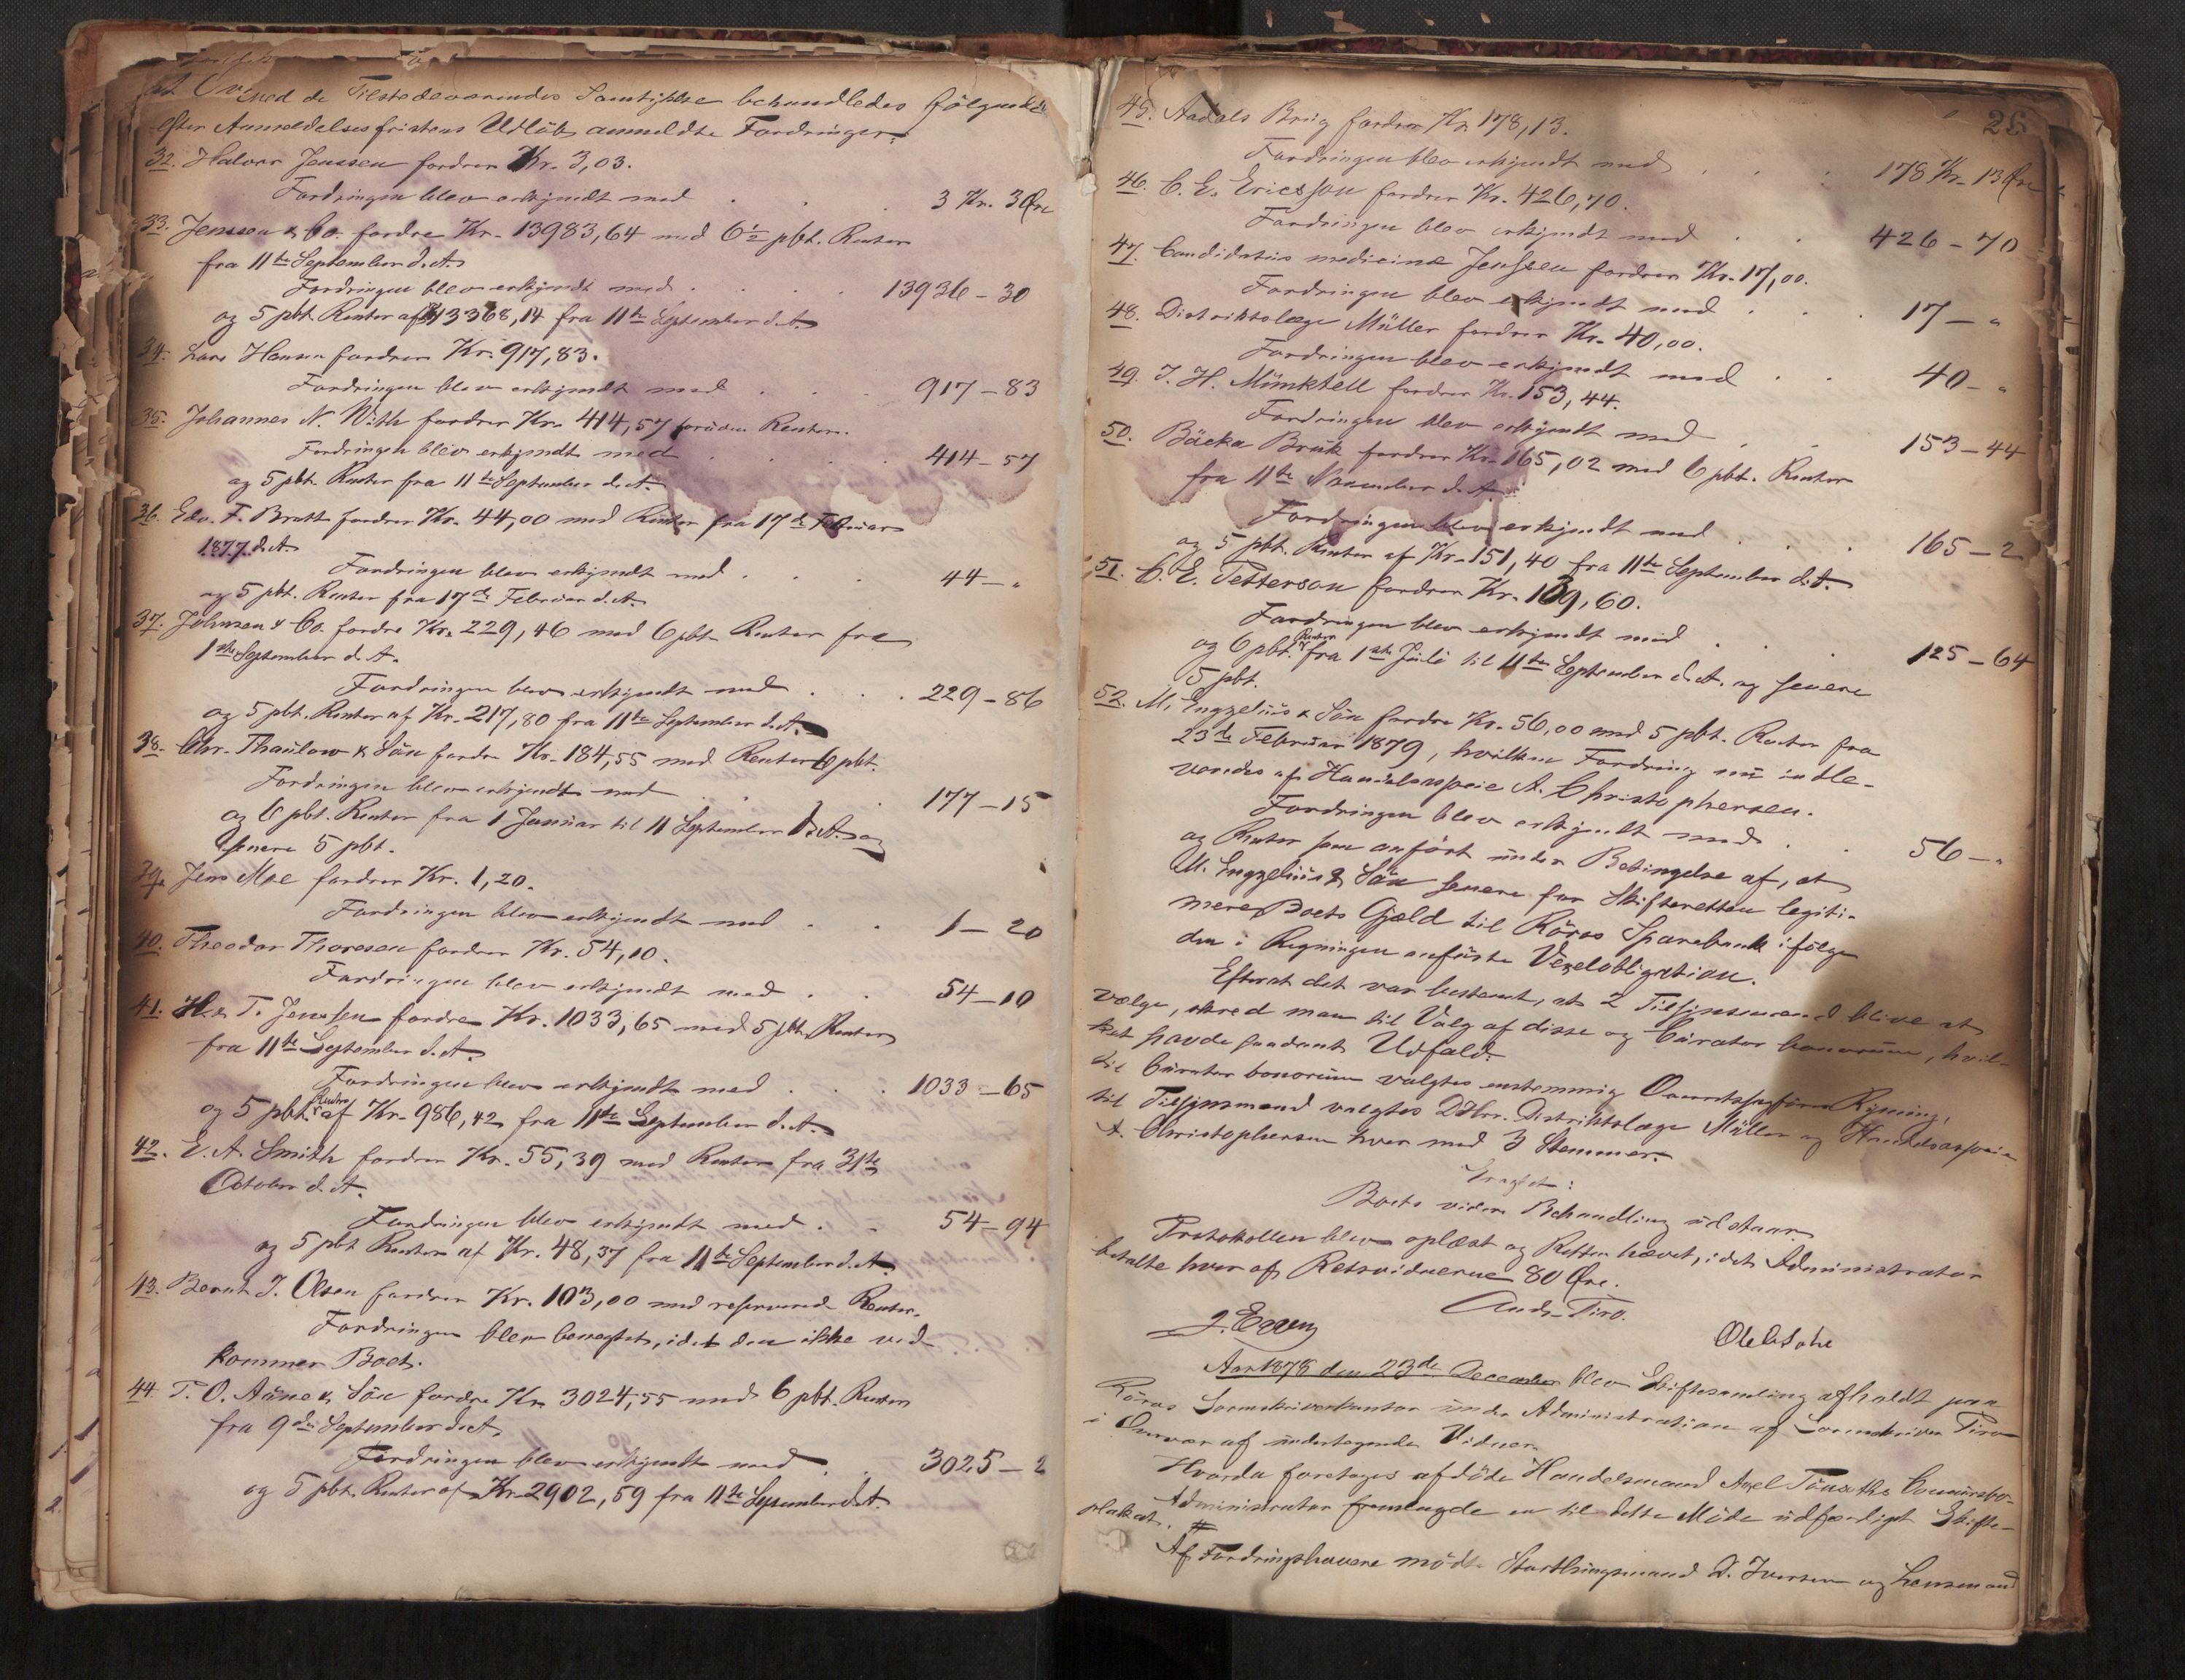 med de Tilstedeværendes Samtykke behandledes følgende
efter Anmeldelsesfristens Udløb anmeldte Fordringer:
32. Halvor Jenssen fordrer Kr. 3,03.
Fordringen blev erkjendt med . . . 3 Kr. 3 Øre
33. Jenssen & Co. fordre Kr. 13983,64 med 6½ pCt. Renter
fra 11te September d. A.
Fordringen blev erkjendt med . . . . 13936 - 30
og 5 pCt. Renter af 13368,14 fra 11te September d. A.
34. Lars Hansen fordrer Kr. 917,83.
Fordringen blev erkjendt med . . . 917 - 83
35. Johannes N. With fordrer Kr. 414,57 foruden Renter.
Fordringen blev erkjendt med . . . 414 - 57
og 5 pCt. Renter fra 11te September d. A.
36. Edv. F. Bratt fordrer Kr. 44,00 med Renter fra 17de Februar
1877 d. A.
Fordringen blev erkjendt med . . . 44 - "
og 5 pCt. Renter fra 17de Februar d. A.
37. Johnsen & Co. fordre Kr. 229,46 med 6 pCt. Renter fra
1ste September d. A.
Fordringen blev erkjendt med . . . . 229 - 86
og 5 pCt. Renter af Kr. 217,80 fra 11te September d. A.
38. Chr. Thaulow & Søn fordre Kr. 184,55 med Renter 6 pCt.
Fordringen blev erkjendt med . . . 177 - 15
og 6 pCt. Renter fra 1 Januar til 11 September d. A. og
senere 5 pCt.
39. Jens Moe fordrer Kr. 1,20.
Fordringen blev erkjendt med . . 1 - 20
40. Theodor Thoresen fordrer Kr. 54,10.
Fordringen blev erkjendt med . . 54 - 10
41. H. & T. Jenssen fordre Kr. 1033,65 med 5 pCt. Renter
fra 11te September d. A.
Fordringen blev erkjendt med . . . 1033 - 65
og 5 pCt. Renter af Kr. 986,42 fra 11te September d. A.
42. E. A. Smith fordrer Kr. 55,39 med Renter fra 31te
October d. A.
Fordringen blev erkjendt med . . 54 - 94
og 5 pCt Renter af Kr. 48,37 fra 11te September d. A.
43. Bernt J. Olsen fordrer Kr. 103,00 med reserverede Renter.
Fordringen blev benegtet, idet den ikke ved-
kommer Boet.
44. T. O. Aüne & Søn fordre Kr. 3024,55 med 6 pCt. Renter
fra 9de September d. A.
Fordringen blev erkjendt med . . 3025 - 2
og 5 pCt. Renter af Kr. 2902,59 fra 11te September d. A.
26
45. Aadals Brug fordrer Kr. 178,13.
Fordringen blev erkjendt med . . . 178 Kr. 13 Øre
46. C. E. Ericsson fordrer Kr. 426,70.
Fordringen blev erkjendt med . . 426 - 70
47. Candidatus medicinæ Jenssen fordrer Kr. 17,00.
Fordringen blev erkjendt med . . . 17 - "
48. Distriktslæge Müller fordrer Kr. 40,00.
Fordringen blev erkjendt med . . 40 - "
49. J. H. Münktell fordrer Kr. 153,44.
Fordringen blev erkjendt med . . 153 - 44
50. Bäcka Bruk fordrer Kr. 165,02 med 6 pCt. Renter
fra 11te November d. A.
Fordringen blev erkjendt med . . . 165 - 2
og 5 pCt. Renter af Kr. 151,40 fra 11te September d. A.
51. C. E. Petterson fordrer Kr. 109,60.
Fordringen blev erkjendt med . . . 125 - 64
og 6 pCt. Renter fra 1ste Juli til 11te September d. A. og senere
5 pCt.
52. M. Engzelius & Søn fordre Kr. 56,00 med 5 pCt. Renter fra
23de Februar 1879, hvilken Fordring nu indle-
veredes af Handelsaspirie A. Christophersen.
Fordringen blev erkjendt med . . 56 - "
og Renter som anført under Betingelse af, at
M. Engzelius & Søn senere for Skifteretten legiti-
merer Boets Gjæld til Röros Sparebank ifølge
den i Regningen anførte Vexelobligation.
Efterat det var bestemt, at 2 Tilsynsmænd blive at
vælge, skred man til Valg af disse og Curator bonorum, hvil-
ket havde saadant Udfald:
til Curator bonorum valgtes enstemmig Overretssagfører Ryning,
til Tilsynsmænd valgtes DHrr. Distriktslæge Müller og Handelsaspirie
A. Christophersen hver med 3 Stemmer.
Eragtet:
Boets videre Behandling udstaar.
Protokollen blev oplæst og Retten hævet, idet Administrator
betalte hver af Retsvidnerne 80 Øre.
Andr. Tiro.
J. Eggen
Aar 1878 den 23de December blev Skiftesamling afholdt paa
Röros Sorenskriverkontor under Administration af Sorenskriver Tiro
i Overvær af undertegnede Vidner.
Hvorda foretoges afdöde Handelsmand Axel Tönseths Concursbo.
Administrator fremlagde en til dette Möde udfærdiget Skifte-
plakat. #
Af Fordringshavere mödte Storthingsmand D. Iversen og Lensmand